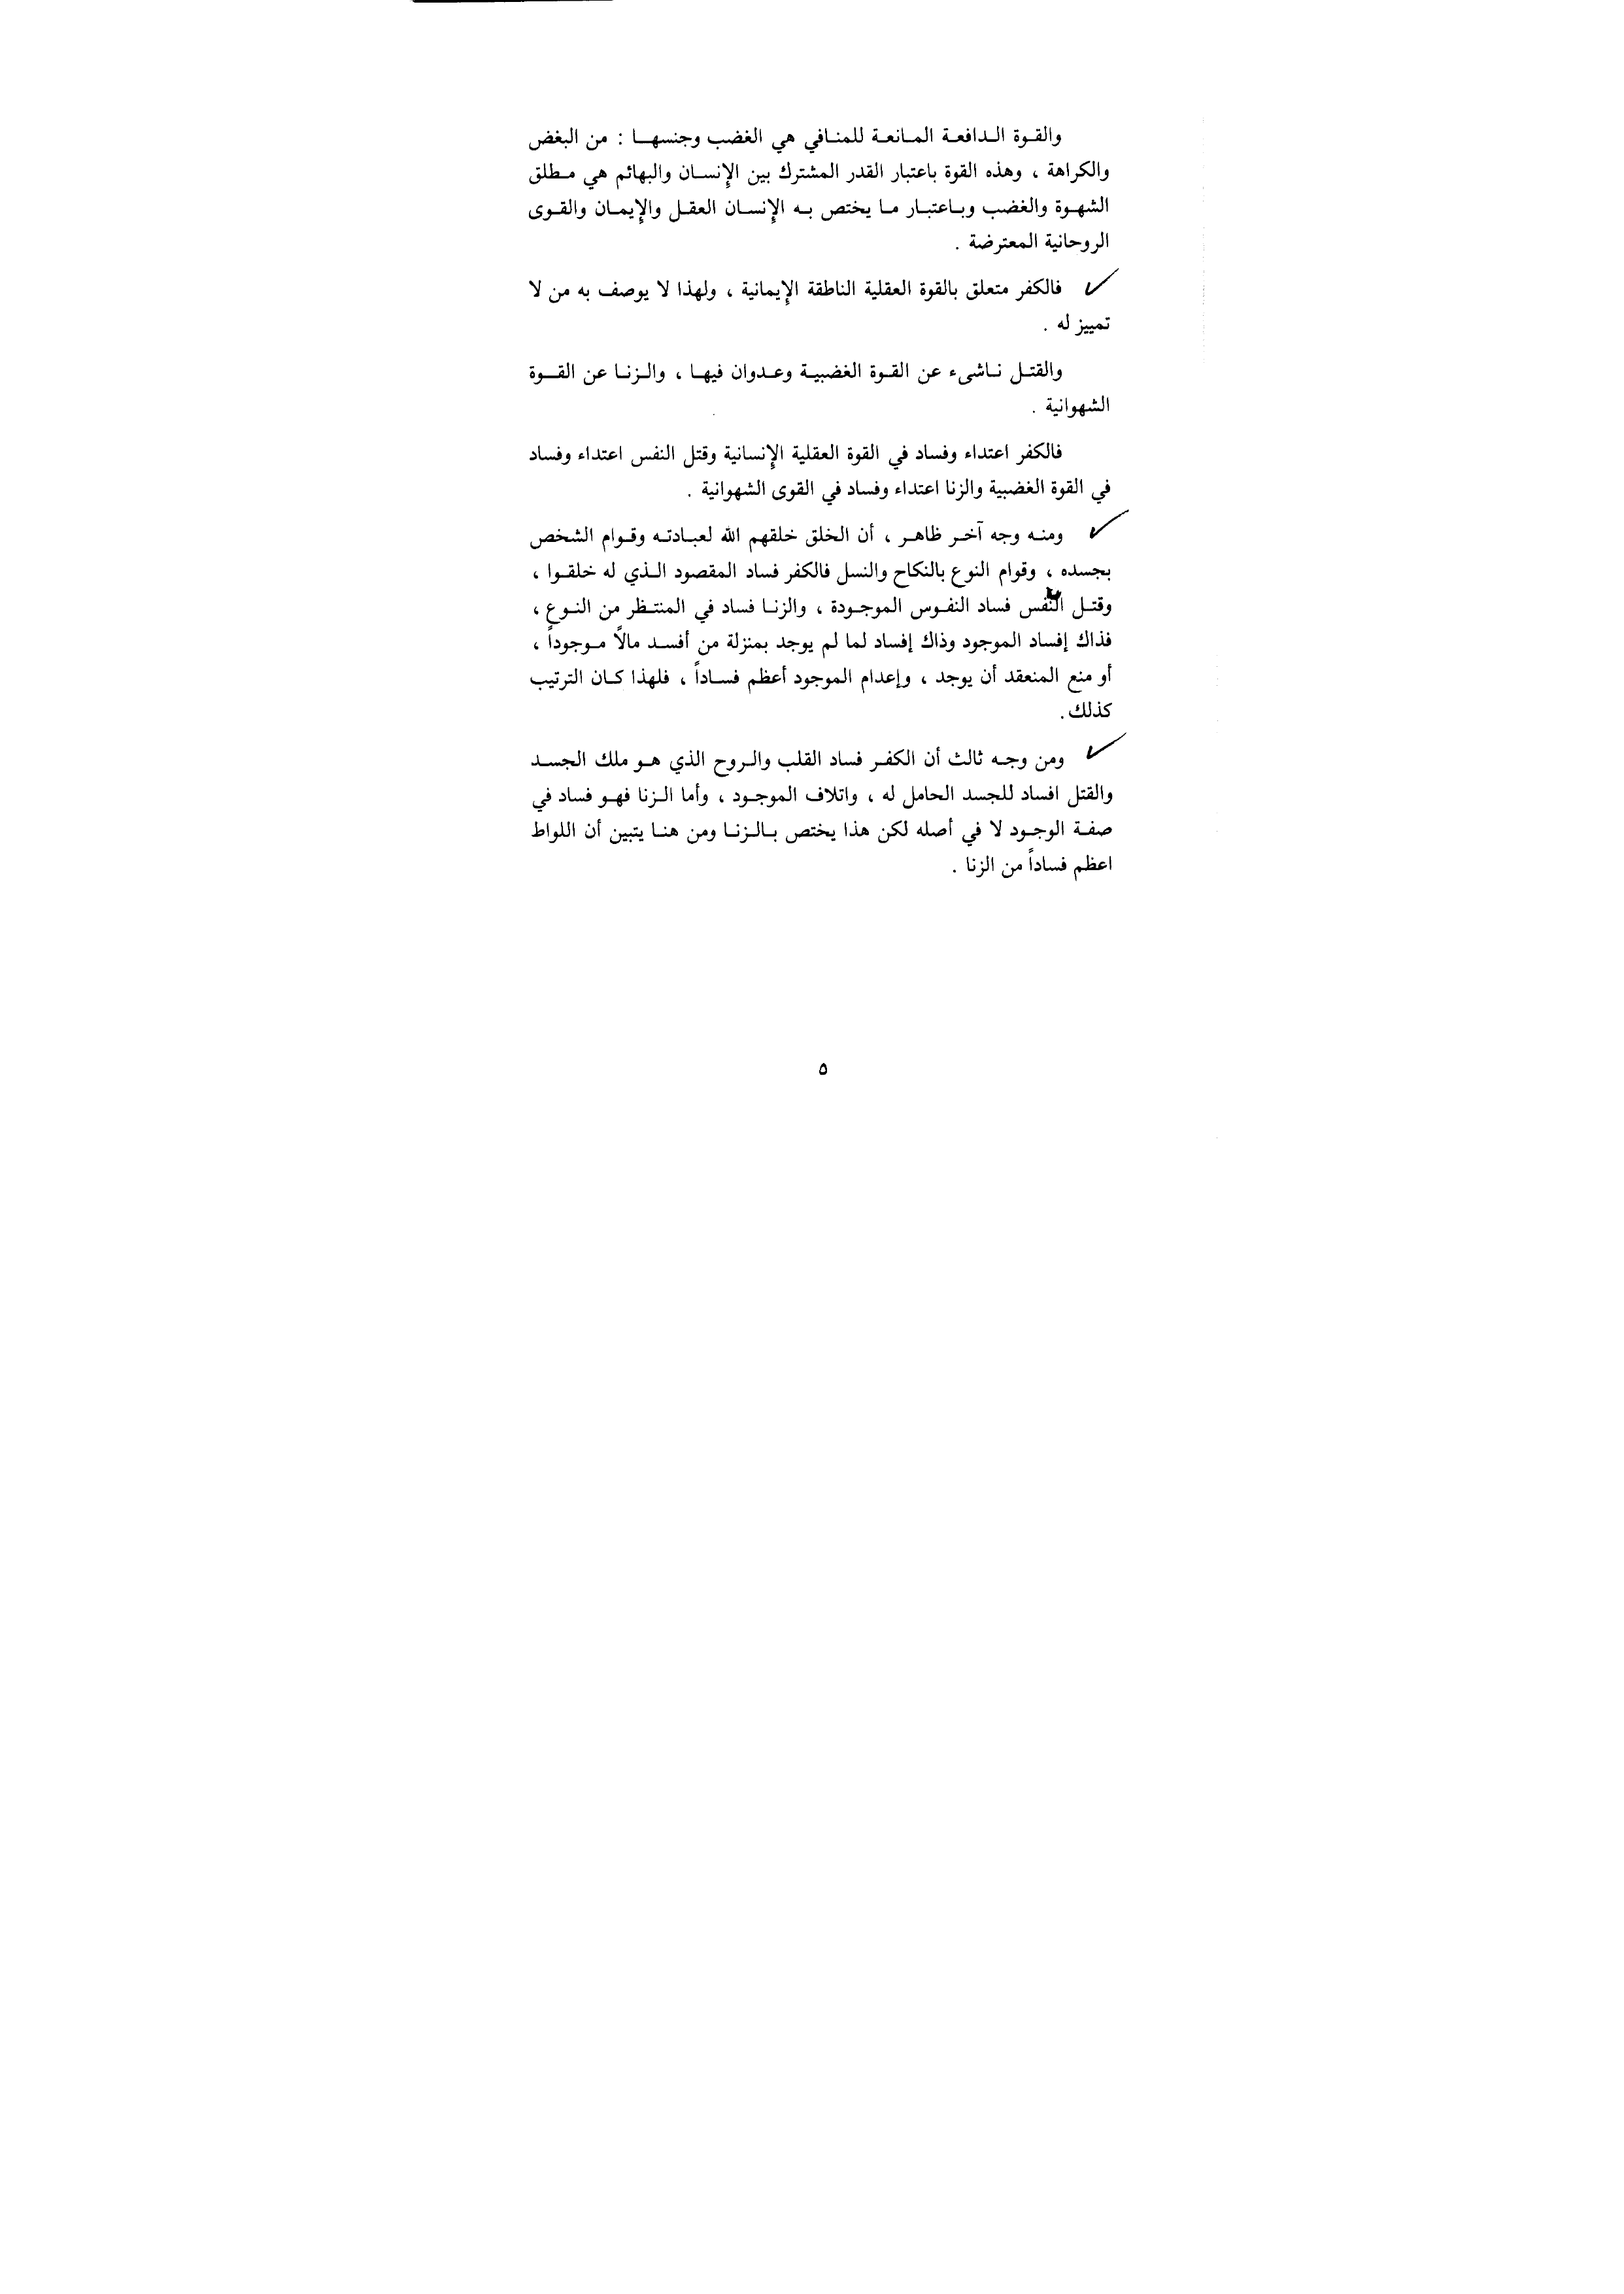 والقوة الدافعة المانعة للمنافي هي الغضب وجنسها : من البغض
والكراهة ، وهذه القوة باعتبار القدر المشترك بين الإنسان والبهائم هي مطلق
الشهوة والغضب وباعتبار ما يختص به الإنسان العقل والإيمان والقوى
الروحانية المعترضة .
فالكفر متعلق بالقوة العقلية الناطقة الإيمانية ، ولهذا لا يوصف به من لا
تمييز له .
والقتل ناشىء عن القوة الغضبية وعدوان فيها ، والزنا عن القوة
الشهوانية .
فالكفر اعتداء وفساد في القوة العقلية الإنسانية وقتل النفس اعتداء وفساد
في القوة الغضبية والزنا اعتداء وفساد في القوى الشهوانية .
ومنه وجه آخر ظاهر ، أن الخلق خلقهم الله لعبادته وقوام الشخص
بجسده ، وقوام النوع بالنكاح والنسل فالكفر فساد المقصود الذي له خلقوا ،
وقتل النفس فساد النفوس الموجودة ، والزنا فساد في المنتظر من النوع ،
فذاك إفساد الموجود وذاك إفساد لما لم يوجد بمنزلة من أفسد مالاً موجوداً ،
أو منع المنعقد أن يوجد ، وإعدام الموجود أعظم فساداً ، فلهذا كان الترتيب
كذلك .
ومن وجه ثالث أن الكفر فساد القلب والروح الذي هو ملك الجسد
والقتل افساد للجسد الحامل له ، واتلاف الموجود ، وأما الزنا فهو فساد في
صفة الوجود لا في أصله لكن هذا يختص بالزنا ومن هنا يتبين أن اللواط
اعظم فساداً من الزنا .
٥